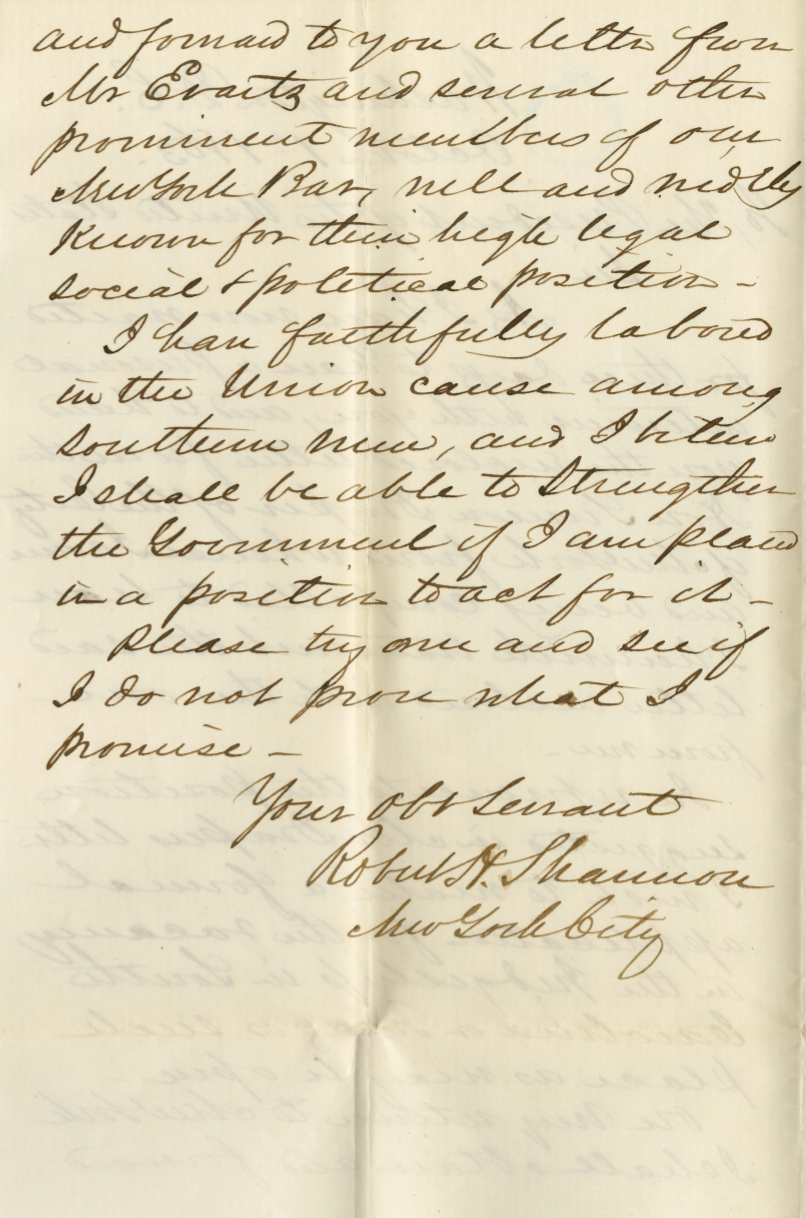 and forward to you a letter from
Mr Evartz and several other
prominent members of our
New York Bar, well and widely
known for their high legal
social & political position -
I have faithfully labored
in the Union cause among
southern men, and I believe
I shall be able to strengthen
the Government if I am placed
in a position to act for it -
Please try me and see if
I do not prove what I
promise -
Your obt servant
Robert H. Shannon
New York City